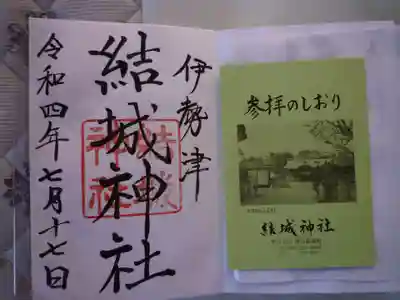 伊勢津
結城神社
令和四年七月十七日
結城神社
参拝のしおり
結城神社